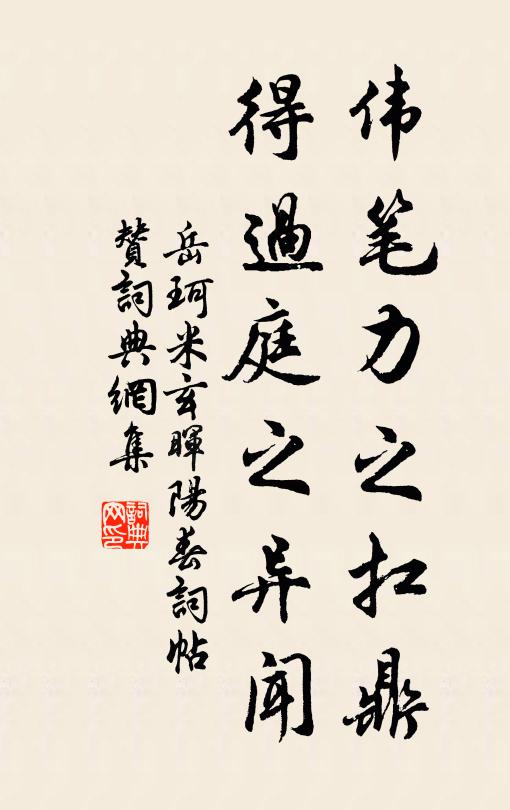 伟笔力之扛鼎
得過庭之异闻
岳珂米玄暉陽春詞帖
赞詞典網集
詞典网印